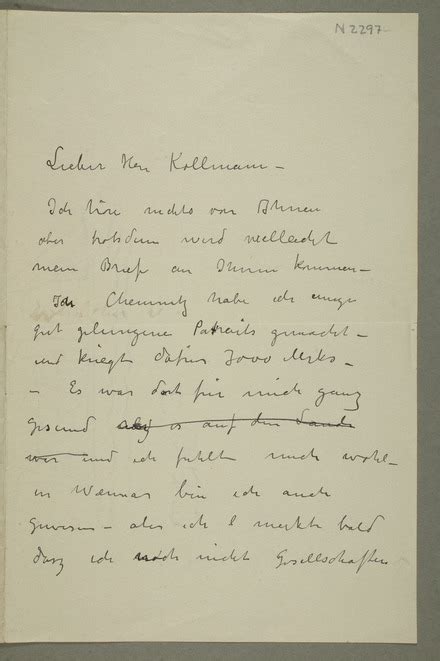 N 2297
Lieber Herr Kollmann –
Ich höre nichts von Ihnen
aber trotzdem wird vielleicht
mein Brief an Ihnen kommen –
In Chemnitz habe ich einige
gut gelungene Portraits gemacht –
und kriegte dafür 7000 Mrks –
– Es war dort für mich ganz
gesund als es auf dem Lande
war und ich fühlte mich wohl –
in Weimar bin ich auch
gewesen – aber ich merkte bald
dasz ich noch nicht Gesellschaften